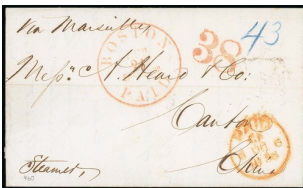 via Marseilles
BOSTON
PAID
38
43
Messrs. A. Heard & Co:
Canton
China
Steamer,